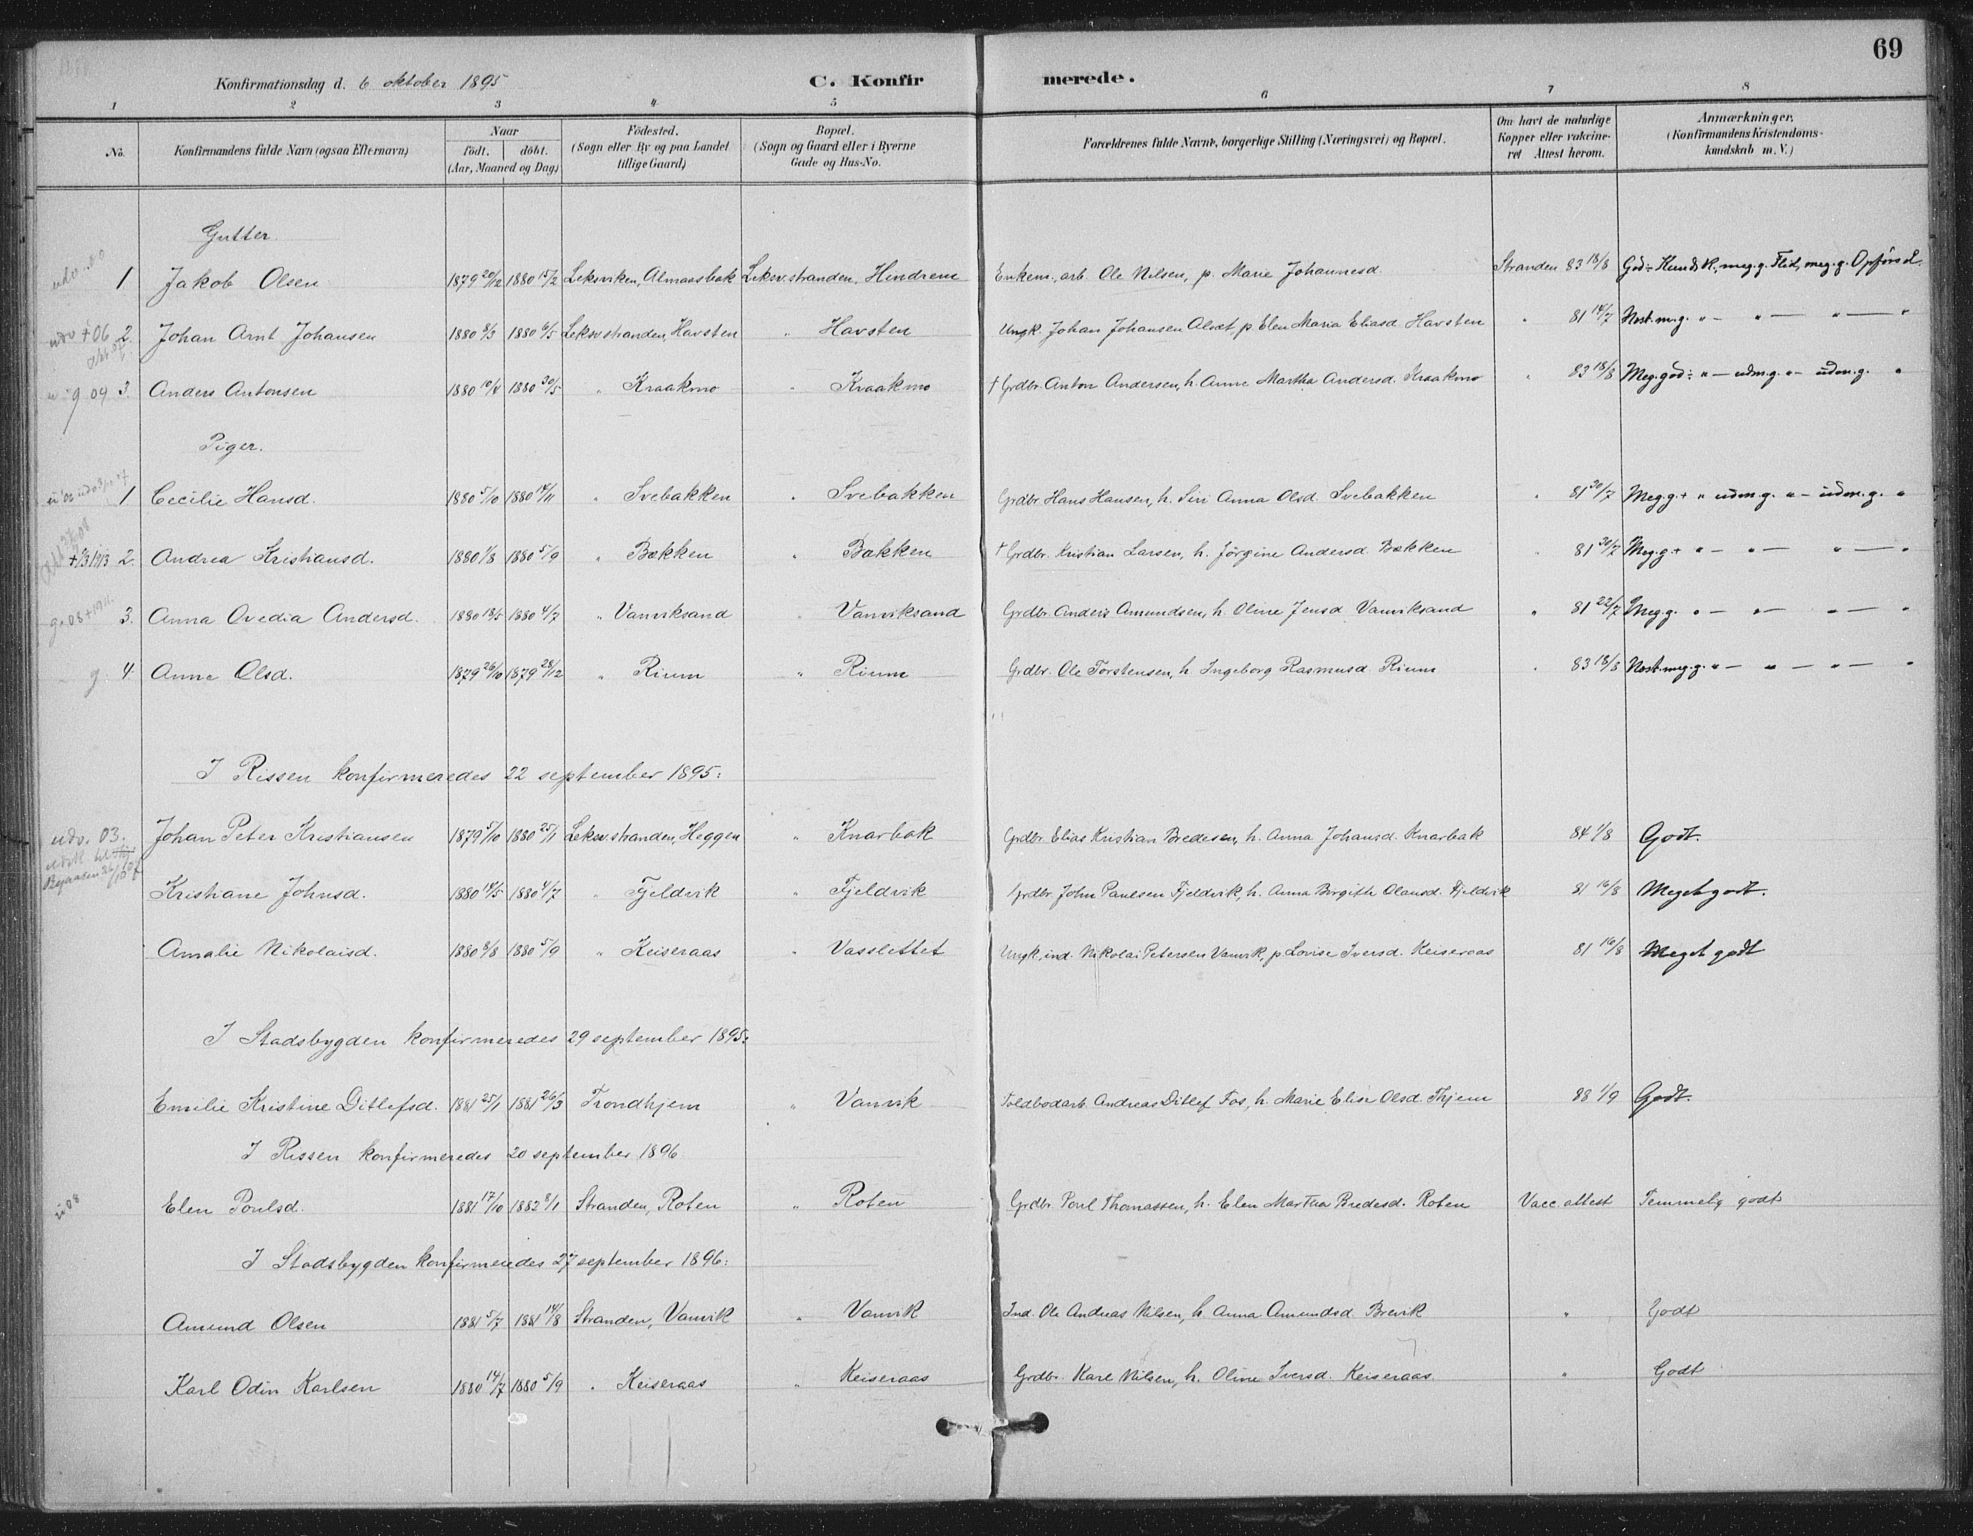 69
Konfirmationsdag d. 6 oktober 1895
C. Konfirmerede.
1 2 3 4 5 6 7 8
No. Konfirmandens fulde Navn (ogsaa Efternavn) Naar født. døbt. (Aar, Maaned og Dag) Fødested. (Sogn eller By og paa Landet tillige Gaard) Bopæl. (Sogn og Gaard eller i Byerne Gade og Hus-No. Forældrenes fulde Navne, borgerlige Stilling (Næringsvei) og Bopæl. Om havt de naturlige Kopper eller vakcineret Attest herom. Anmærkninger. (Konfirmandens Kristendomskundskab m. V.)
Gutter
1 Jakob Olsen 1879 20/12 1880 15/2 Leksviken, Almaasbak Leksv. stranden, Hindrem Enkem. arb. Ole Nilsen, p. Marie Johannesd. Stranden 83 18/8 God÷ Kundsk., meg. g. Flid, meg. g. Opførsel.
udv + 06 2. Johan Arnt Johansen 1880 8/3 1880 6/5 Leksv stranden, Havsten " Havsten Ungk. Johan Johansen Alvdt p Elen Maria Eliasd Havsten " 81 14/7 Næst.m.g. " — " — " — "
g 09 3. Anders Antonsen 1880 10/4 1880 30/5 " Kraakmo " Kraakmo + Grdbr. Anton Andersen, h. Anne Martha Andersd. Kraakmo " 83 18/8 Meg. god÷ " — udm.g. " — udm.g. "
Piger.
1 Cecilie Hansd. 1880 5/10 1880 14/11 " Svebakken " Svebakken Grdbr Hans Hansen, h. Siri Anna Olsd. Svebakken " 81 20/7 Meg. g. + " udm.g. " — udm. g. "
2. Andrea Kristiansd. 1880 1/8 1880 5/9 " Bækken " Bækken + Grdbr. Kristian Larsen, h. Jørgine Andersd. Bækken " 81 30/7 Meg. g + " — " — " — "
g. 08 3. Anna Ovedia Andersd. 1880 18/5 1880 4/7 " Vanviksand " Vanviksand Grdbr Anders Amundsen, h. Oline Jensd Vanviksand " 81 22/7 Meg. g. " — " — " — "
g 4. Anne Olsd. 1879 26/10 1879 28/12 " Rium " Rium Grdbr. Ole Torstensen, h. Ingeborg Rasmusd Rium " 83 18/8 Næst.meg.g. " — " — " — "
I Rissen konfirmeredes 22 september 1895:
udv. 03. Johan Peter Kristiansen 1879 5/10 1880 25/1 Leksv. stranden, Heggen " Knarbak Grdbr. Elias Kristian Bredesen, h. Anna Johansd. Knarbak 84 1/8 Godt.
Kristiane Johnsd. 1880 14/5 1880 4/7 " Fjeldvik " Fjeldvik Grdbr John Paulsen Fjeldvik, h. Anna Birgith Olausd. Fjeldvik 81 16/8 Meget godt.
Amalie Nikolaisd. 1880 8/8 1880 5/9 " Keiseraas " Vasslettet Ungk. ind. Nikolai Petersen Vanvik, p Lovise Iversd. Keiseraas 81 16/8 Meget godt
I Stadsbygden konfirmeredes 29 september 1895:
Emilie Kristine Ditlefsd. 1881 25/1 1881 26/3 Trondhjem " Vanvik Toldbodarb. Andreas Ditlef Fos, h. Marie Elise Olsd. Thjem 88 1/9 Godt.
I Rissen konfirmeredes 20 september 1896
08 Elen Poulsd. 1881 17/10 1882 8/1 Stranden, Roten " Roten Grdbr. Poul Thomassen, h. Elen Martha Bredesd. Roten Vacc. attest Temmelig godt
I Stadsbygden konfirmeredes 27 september 1896:
Amund Olsen 1881 5/7 1881 14/8 Stranden, Vanvik " Vanvik Ind. Ole Andreas Nilsen, h Anna Amundsd Brevik " Godt
Karl Odin Karlsen 1880 14/7 1880 5/9 " Keiseraas " Keiseraas Grdbr. Karl Nilsen, h. Oline Iversd. Keiseraas. " Godt